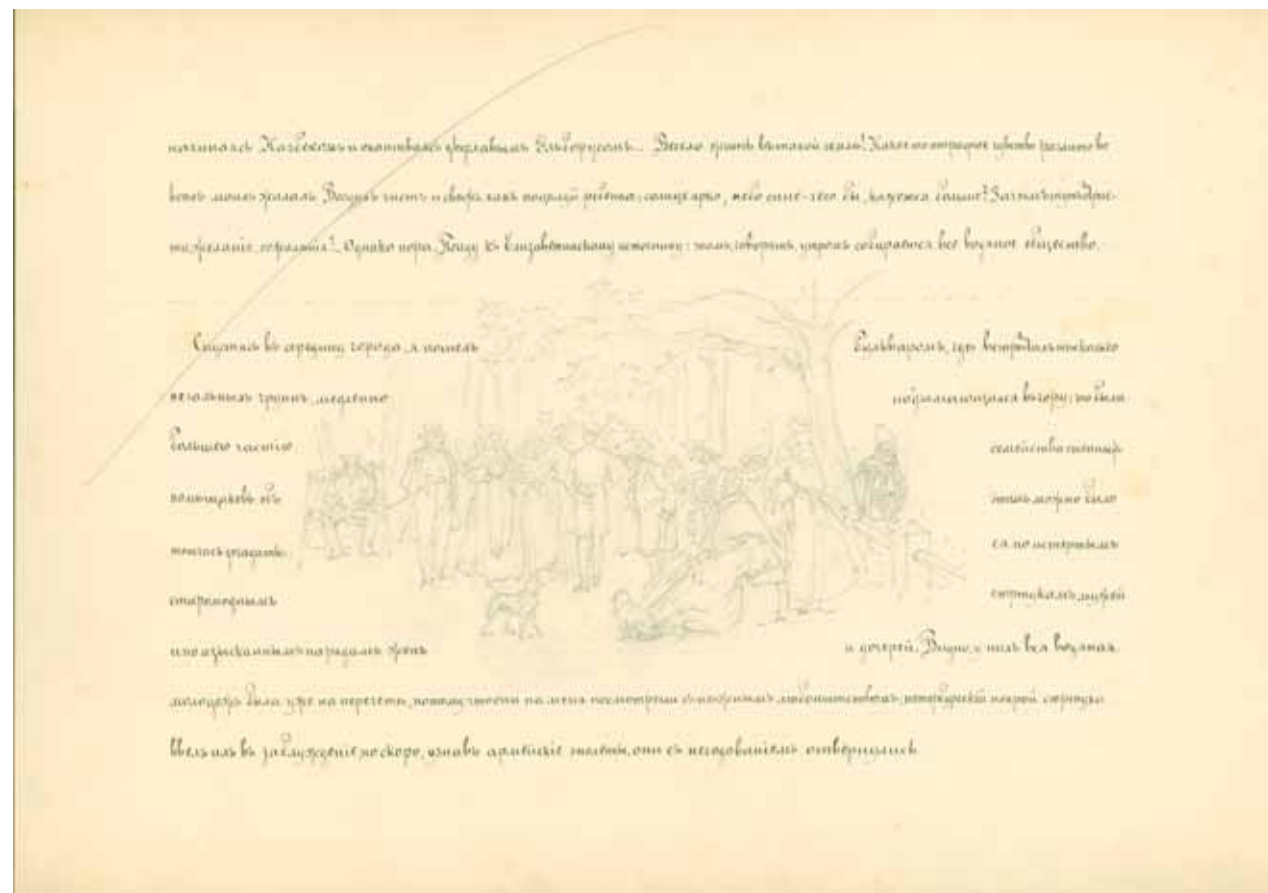 начинаясь Казбекомъ и оканчиваясь двуглавымъ Эльборусомъ... Весело жить въ такой землѣ! Какое-то отрадное чувство разлито во
всѣхъ моихъ жилахъ. Воздухъ чистъ и свѣжъ, какъ поцѣлуй ребенка; солнце ярко, небо сине – чего бы, кажется, больше? Зачѣмъ тутъ страс-
ти, желанія, сожалѣнія?.. Однако пора. Пойду къ Елизаветинскому источнику: тамъ, говорятъ, утромъ собирается все водяное общество.
Спустясь въ середину города, я пошелъ бульваромъ, гдѣ встрѣтилъ нѣсколько
печальныхъ группъ, медленно подымающихся въ гору; то были
большею частію семейства степныхъ
помѣщиковъ; объ этомъ можно было
тотчасъ угадать по истертымъ
старомоднымъ сюртукамъ мужей
и по изысканнымъ нарядамъ женъ и дочерей. Видно, у нихъ вся водяная
молодежь была уже на перечетѣ, потому что они на меня посмотрѣли съ нѣжнымъ любопытствомъ; петербургскій покрой сюртука
ввелъ ихъ въ заблужденіе, но скоро, узнавъ армейскіе эполеты, они съ негодованіемъ отвернулись